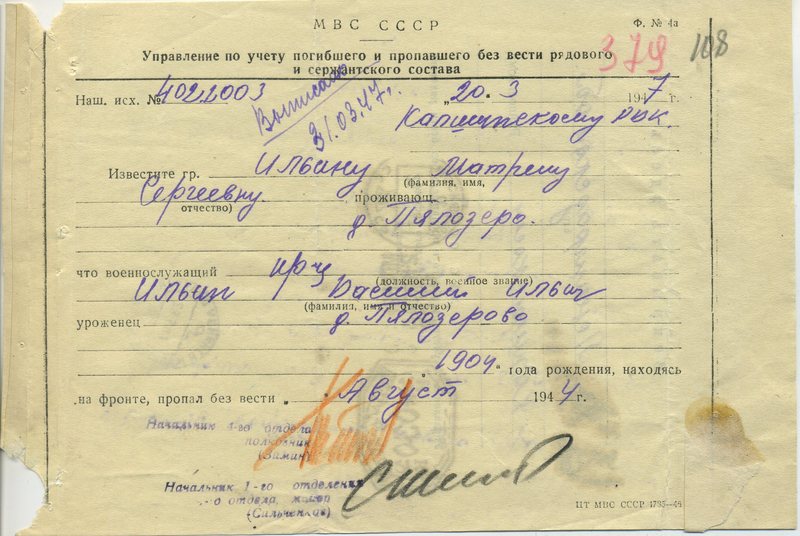 МВС СССР
Ф. № 4а
Управление по учету погибшего и пропавшего без вести рядового
и сержантского состава
379 108
Наш. исх. № 4022003 „20.3 1947 г.
Выписано
31.03.47г.
Капшинскому РВК.
Известите гр. Ильину Матрену
(фамилия, имя,
Сергеевну проживающ.
отчество)
д. Пялозеро.
что военнослужащий кр-ц
(должность, военное звание)
Ильин Василий Ильич
(фамилия, имя и отчество)
уроженец д. Пялозерово
1904 года рождения, находясь
на фронте, пропал без вести „ Август 1944 г.
Начальник 1-го отдела
полковник
(Зимин)
Начальник 1-го отделения
-го отдела, майор
(Сильченков)
ЦТ МВС СССР 4735—46